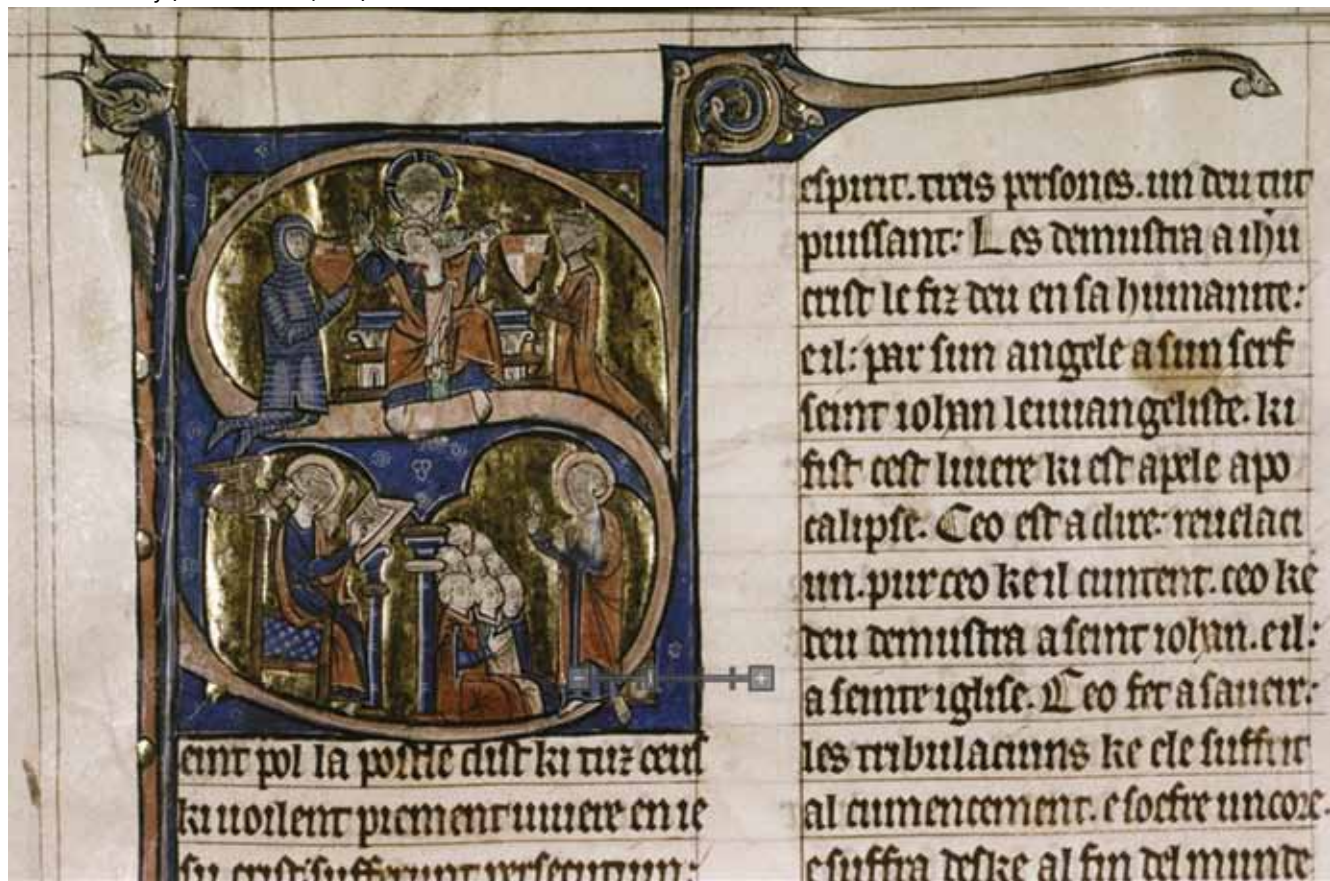 eint pol la postle dist ki tuz ceus
ki uoilent piement uiuere en ie
su crist sufferunt persecutiun:
espirit. treis persones. un deu tut
puissant: Les demustra a ihu
crist le fiz deu en sa humanite:
e il: par sun angele a sun serf
seint iohan leuuangeliste. ki
fist cest liuere ki est apele apo
calipse. Ceo est a dire: reuelaci
un. pur ceo ke il cuntent. ceo ke
deu demustra a seint iohan. e il:
a seinte iglise. Ceo fet a saueir:
les tribulaciuns ke ele suffrit
al cumencement. e soefre uncore.
e suffra deske al fin del munde